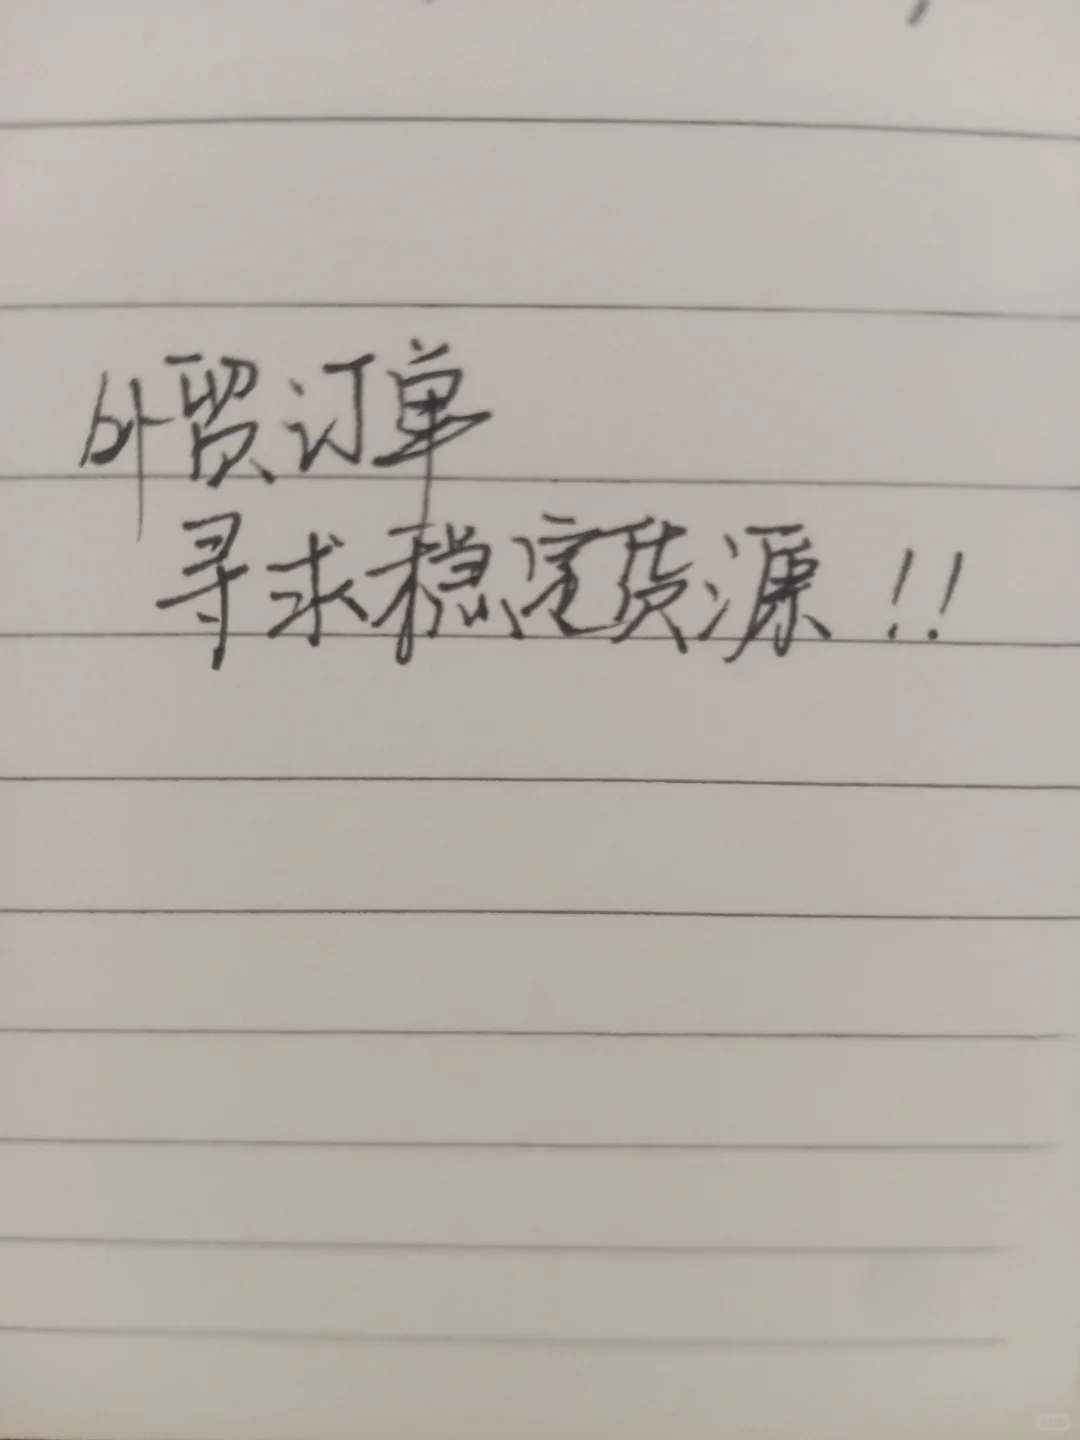 外贸订单
寻求稳定货源!!